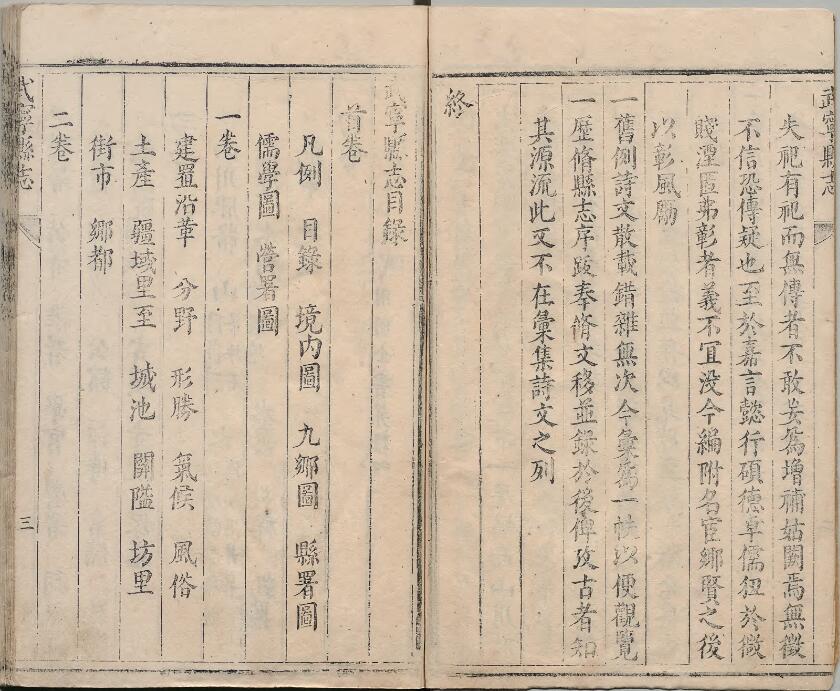 武寧縣志
失祀有祀而無傳者不敢妄爲增補姑闕焉無徵
不信恐傳疑也至於嘉言懿行碩德卓儒狃於微
賤湮匿弗彰者義不冝没今編附名宦鄉賢之後
以彰風勵
一舊例詩文散載錯雜無次今彙爲一帙以便觀覽
一歷脩縣志序跋奉脩文移並録於後俾攷古者知
其源流此又不在彙集詩文之列
終
武寧縣志目錄
首卷
凡例 目錄 境内圖 九鄉圖 縣署圖
儒學圖 營署圖
一卷
建置沿革 分野 形勝 氣候 風俗
土產 疆域里至 城池 關隘 坊里
街市 鄉都
二卷
武寧縣志
三